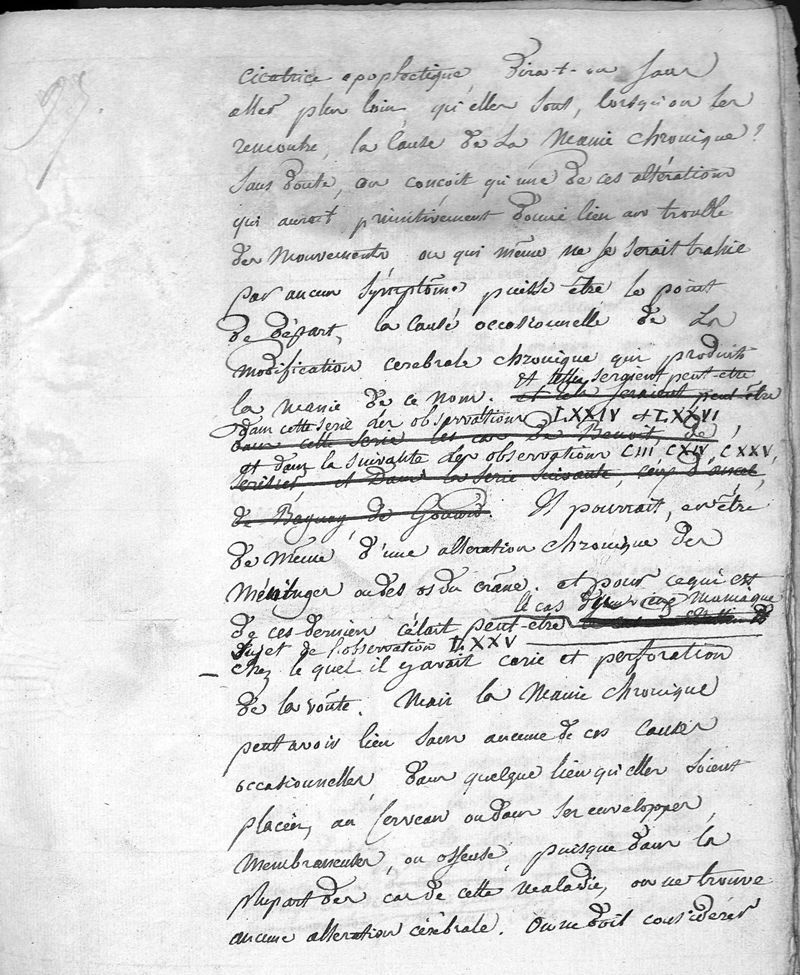 97.
cicatrice apoplectique, dira-t-on sans
aller plus loin, qu'elles sont, lorsqu'on les
rencontre, la cause de La Manie chronique?
Sans doute, on conçoit qu'une de ces altérations
qui auroit primitivement donné lieu au trouble
des mouvements ou qui même ne se serait trahie
par aucun symptôme puisse être le point
de départ, la cause occasionnelle de La
modification cerebrale chronique qui produit
la manie de ce nom. et tels seraient peut-être
Et telles seraient peut-être
dans cette serie des observations LXXIV et LXXVI
dans cette serie les cas de Benoit, de
et dans la suivante des observations CIII CXIV, CXXV,
et Dans la serie suivante, ceux d'
de de Gouard. Il pourrait, en être
de même d'une alteration chronique des
Méninges ou des os du crâne. et pour ce qui est
le cas d'un Maniaque
de ces derniers c'était peut-être
Sujet de l'observation LXXV
chez lequel il y avait carie et perforation
de la voûte. Mais la Manie chronique
peut avoir lieu sans aucune de ces causes
occasionnelles, dans quelque lieu qu'elles soient
placées, au Cerveau ou dans ses enveloppes,
membraneuses, ou osseuse, puisque dans la
plupart des cas de cette maladie, on ne trouve
aucune alteration cérébrale. On ne doit considérer